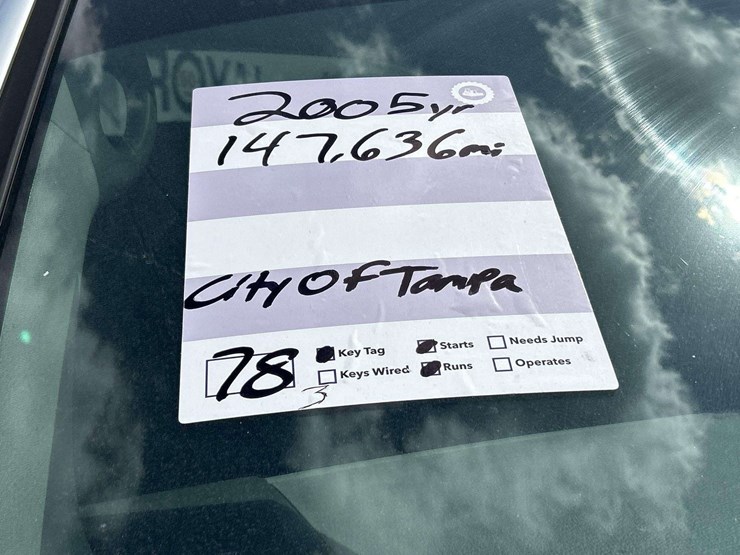 2005yr
147,636mi
City Of Tampa
78
3
Key Tag
Keys Wired
Starts
Runs
Needs Jump
Operates